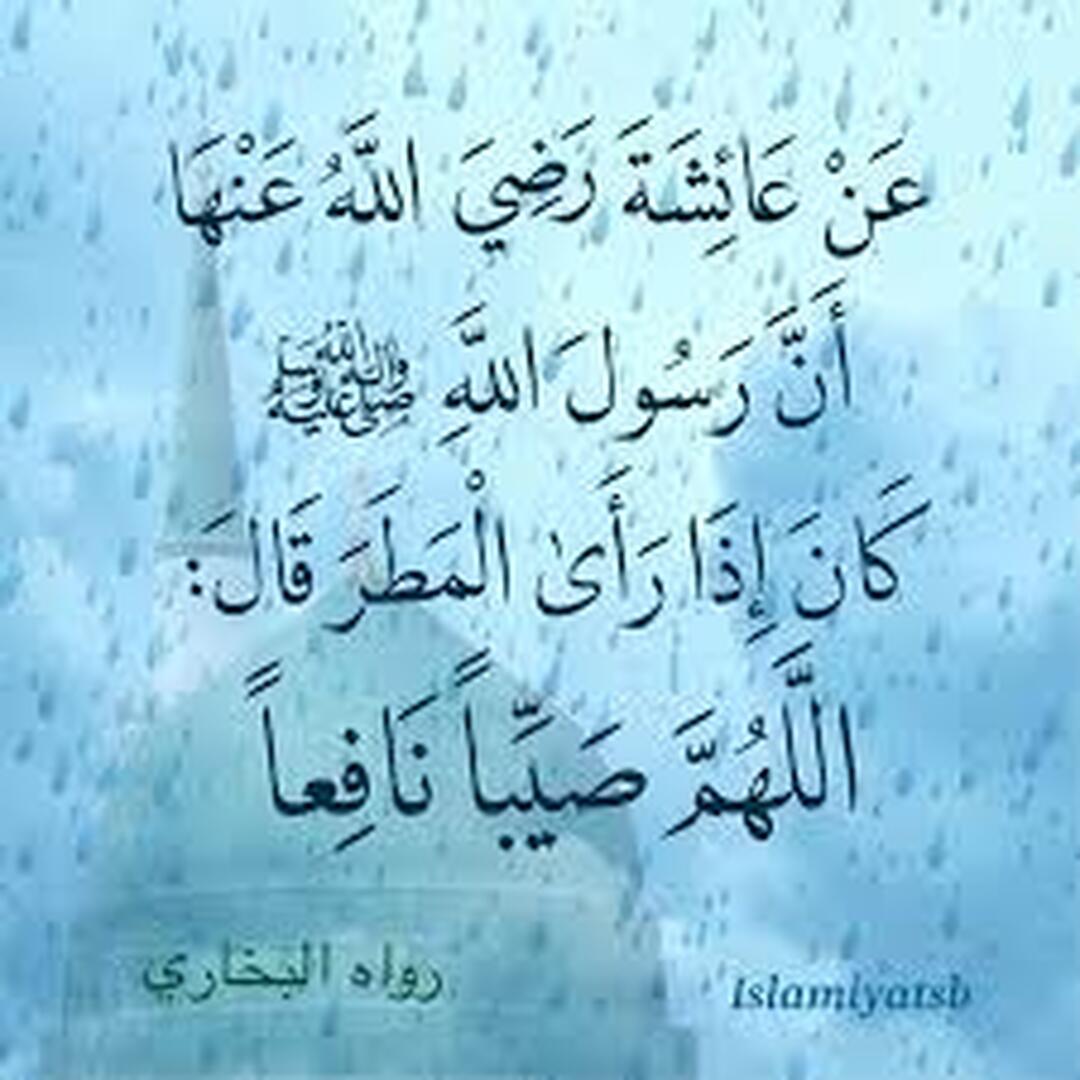 عَنْ عَائِشَةَ رَضِيَ اللَّهُ عَنْهَا
أَنَّ رَسُولَ اللَّهِ ﷺ
كَانَ إِذَا رَأَىٰ الْمَطَرَ قَالَ:
اللَّهُمَّ صَيِّباً نَافِعاً
رواه البخاري
islamiyatsb